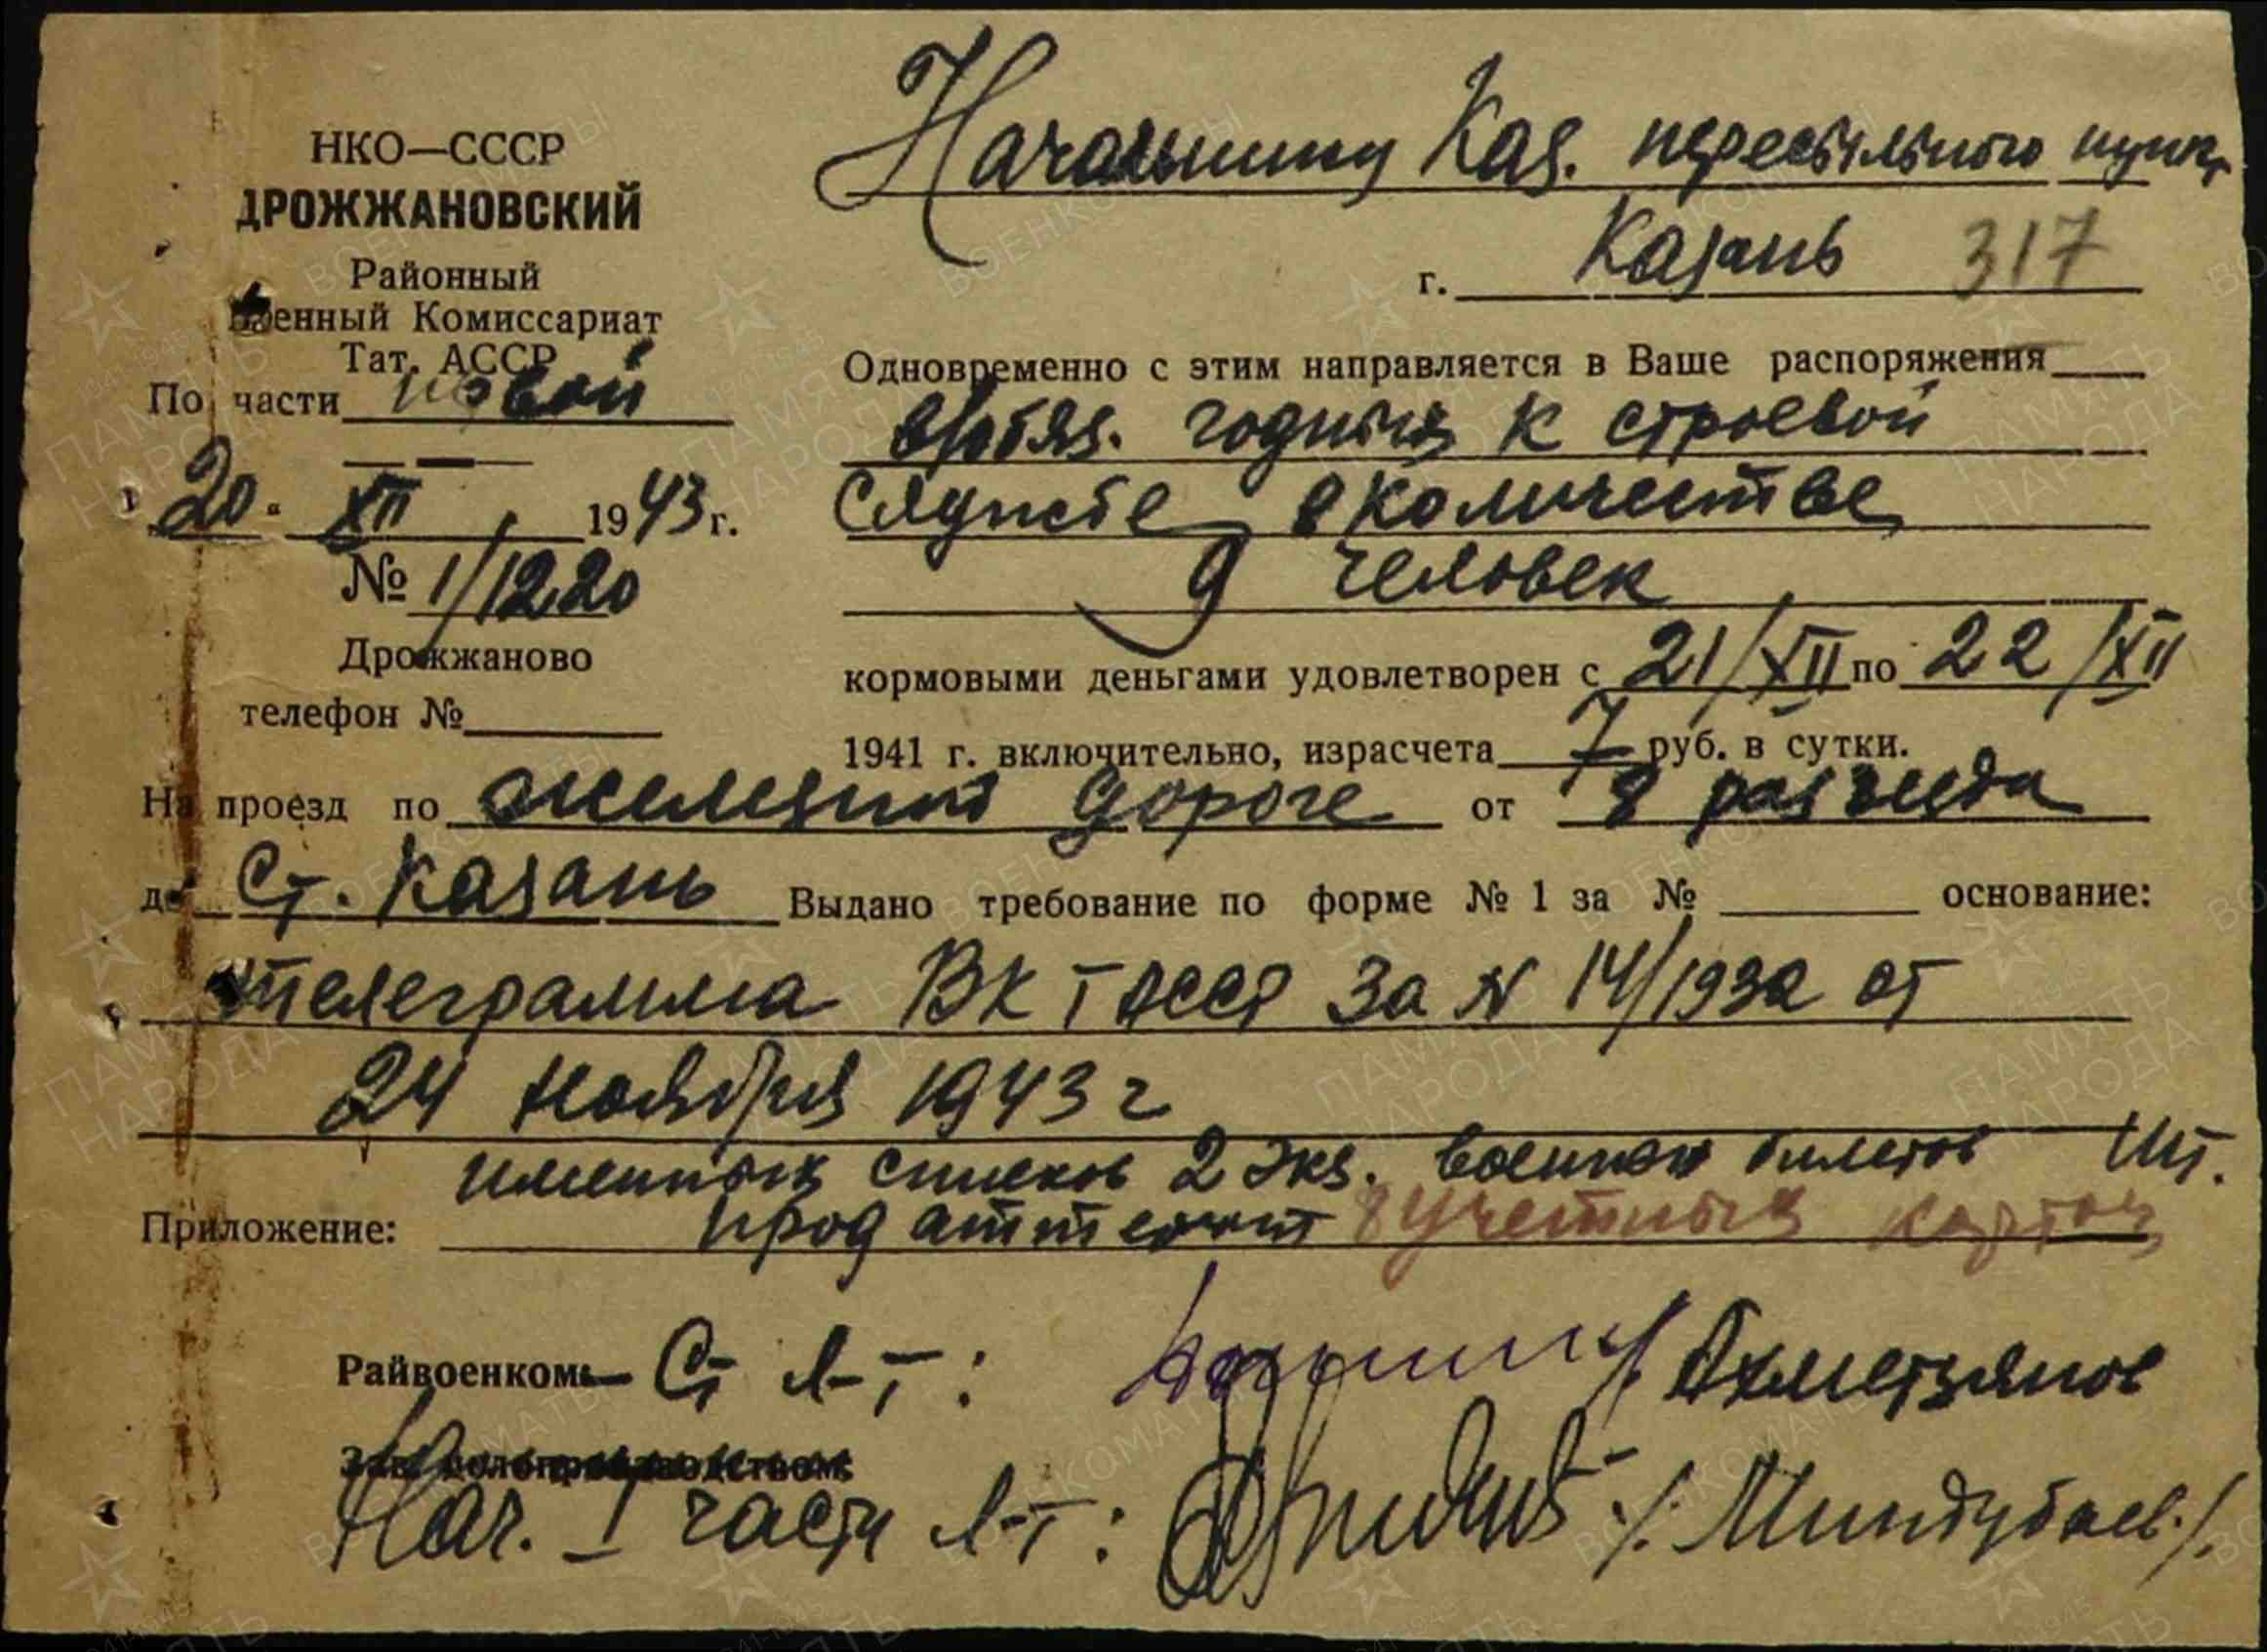 НКО—СССР
ДРОЖЖАНОВСКИЙ
Районный
Военный Комиссариат
Тат. АССР
По части первой
20. XII 1943 г.
№ 1/1220
Дрожжаново
телефон №
Начальнику Каз. пересыльного пункт
г. Казань 317
Одновременно с этим направляется в Ваше распоряжения
в/обяз. годных к строевой
службе в количестве
9 человек
кормовыми деньгами удовлетворен с 21/XII по 22/XII
1941 г. включительно, израсчета 7 руб. в сутки.
На проезд по железной дороге от 8 разъезда
до Ст. Казань Выдано требование по форме № 1 за № основание:
телеграмма ВК ТАССР за N 14/1932 от
24 ноября 1943 г
именных списков 2 экз. военных билетов шт.
Приложение: прод аттестат 8 учетных карточ
Райвоенком Ст Л-т: Ахметзянов
Зав. делопроизводством
Нач. I части л-т: /Миндубаев./